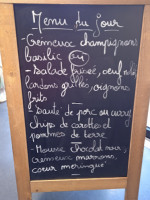 Menu du jour
- Crémeux champignons
basilic
ou
- Salade frisée, oeuf mollet
lardons grillés, oignons
frits
- Sauté de porc au curry
chips de carottes et
pommes de terre
- Mousse chocolat noir,
crémeux marrons,
coeur meringué